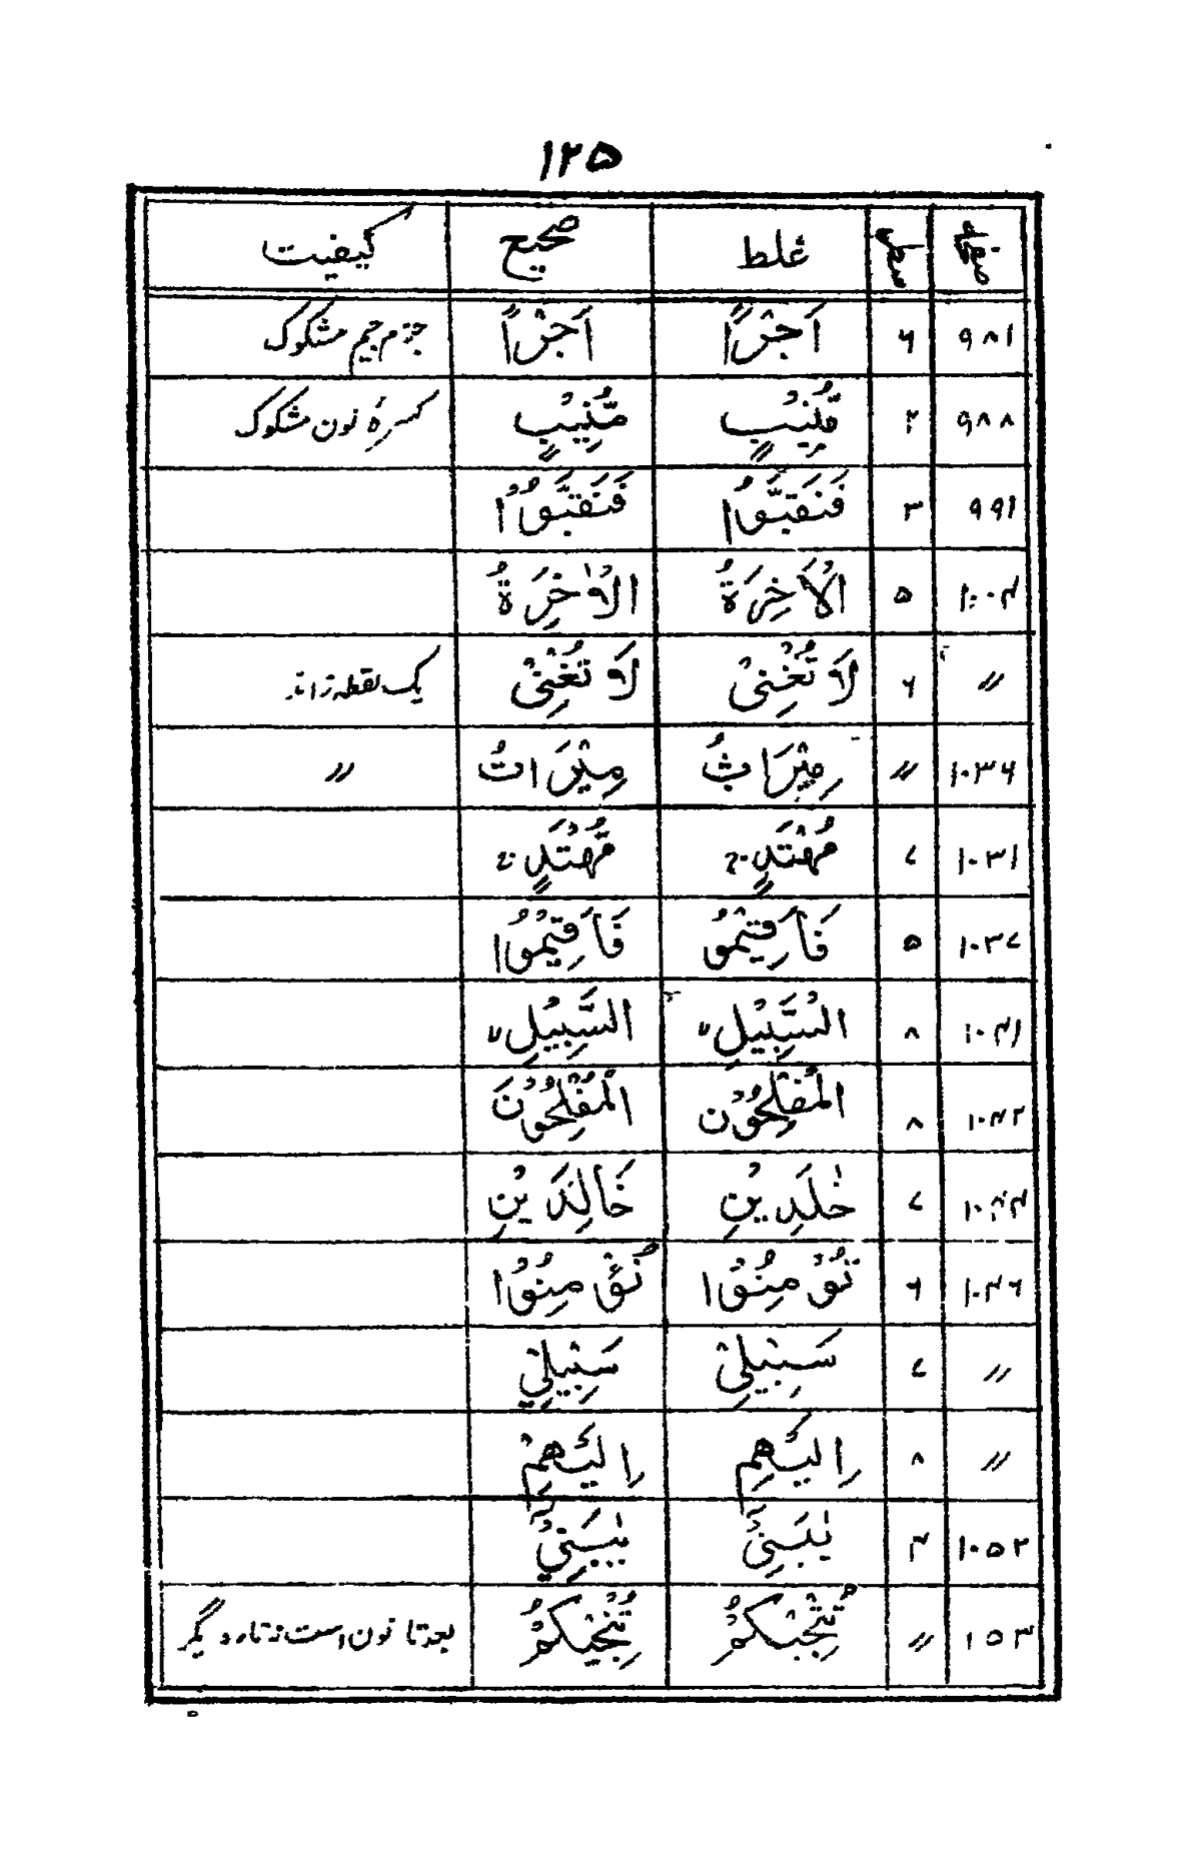 ۱۲۵
صفحات سطر غلط صحیح کیفیت
۹۸۱ ۶ اَجْرًا اَجْرًا جزم جیم مشکوک
۹۸۸ ۲ مُّنِیْبٍ مُّنِیْبٍ کسرۂ نون مشکوک
۹۹۱ ۳ فَنَقَّبُوا فَنَقَّبُوْا
۱۰۰۴ ۵ الْاَخِرَةُ الْاٰخِرَةُ
〃 ۶ لَا تُغْنِیْ لَا تُغْنِیْ یک نقطہ زائد
۱۰۳۶ 〃 مِیْرَاثُ مِیْرَاثُ 〃
۱۰۳۱ ۷ مُهْتَدٍ مُّهْتَدٍ
۱۰۳۷ ۵ فَاَقِیْمُو فَاَقِیْمُوْا
۱۰۴۱ ۸ السَّبِیْلِ السَّبِیْلِ
۱۰۴۲ ۸ الْمُفْلِحُوْن الْمُفْلِحُوْنَ
۱۰۴۴ ۷ خٰلَدِیْنِ خَالِدَیْنِ
۱۰۴۶ ۶ تُؤْمِنُوْا تُؤْمِنُوْا
〃 ۷ سَبِیْلِیْ سَبِیْلِیْ
〃 ۸ اِلَیْهِمِ اِلَیْهِمْ
۱۰۵۲ ۴ یٰبَنِیْٓ یٰبَنِیْٓ
۱۰۵۳ 〃 تُنْجِیْکُمْ تُنْجِیْکُمْ بعد تا نون است نہ تاء دیگر